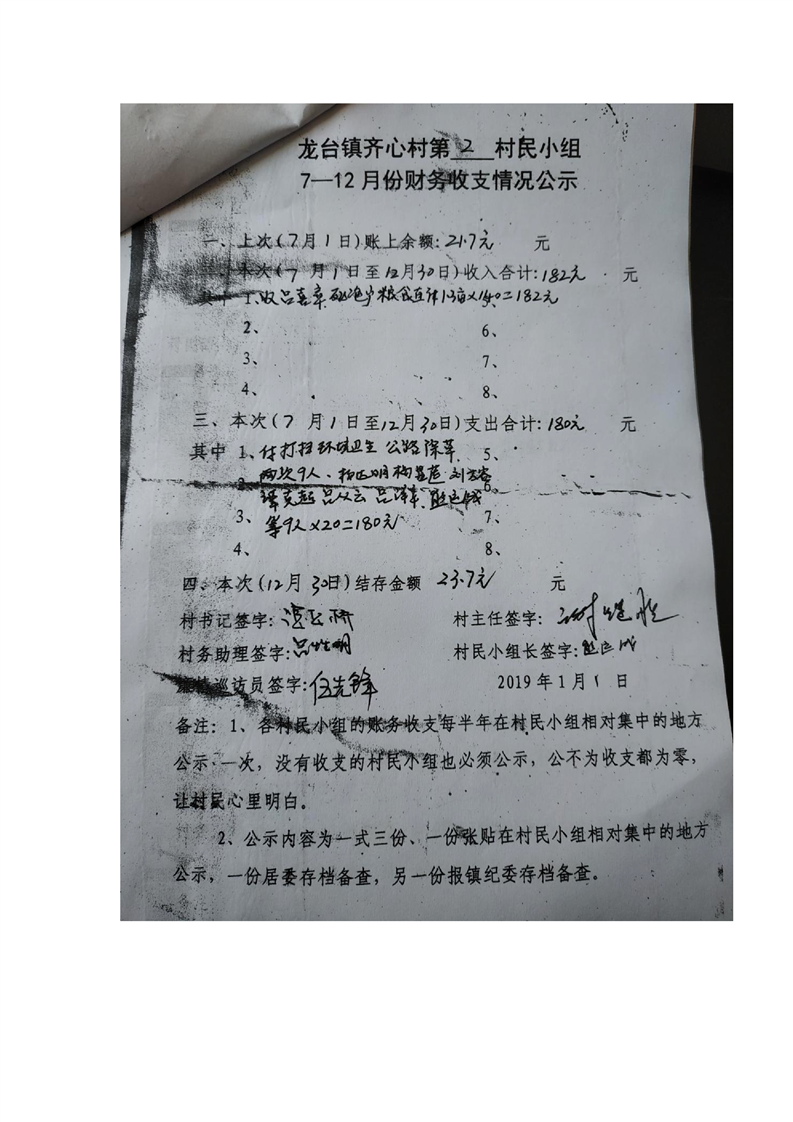 龙台镇齐心村第 2 村民小组
7—12月份财务收支情况公示
一、上次(7月1日)账上余额:21.7元 元
本次(7月1日至12月30日)收入合计:182元 元
其中 1、收吕 粮食直 1.3亩×140=182元
2、 6、
3、 7、
4、 8、
三、本次(7月1日至12月30日)支出合计:180元 元
其中 1、付打扫环境卫生 公路除草 5、
2、两次9人、
3、等9人×20=180元 7、
4、 8、
四、本次(12月30日)结存金额 23.7元 元
村书记签字: 村主任签字:
村务助理签字: 村民小组长签字:
巡访员签字:伍先锋 2019年1月1日
备注:1、各村民小组的账务收支每半年在村民小组相对集中的地方
公示一次,没有收支的村民小组也必须公示,公不为收支都为零,
让村民心里明白。
2、公示内容为一式三份、一份张贴在村民小组相对集中的地方
公示,一份居委存档备查,另一份报镇纪委存档备查。